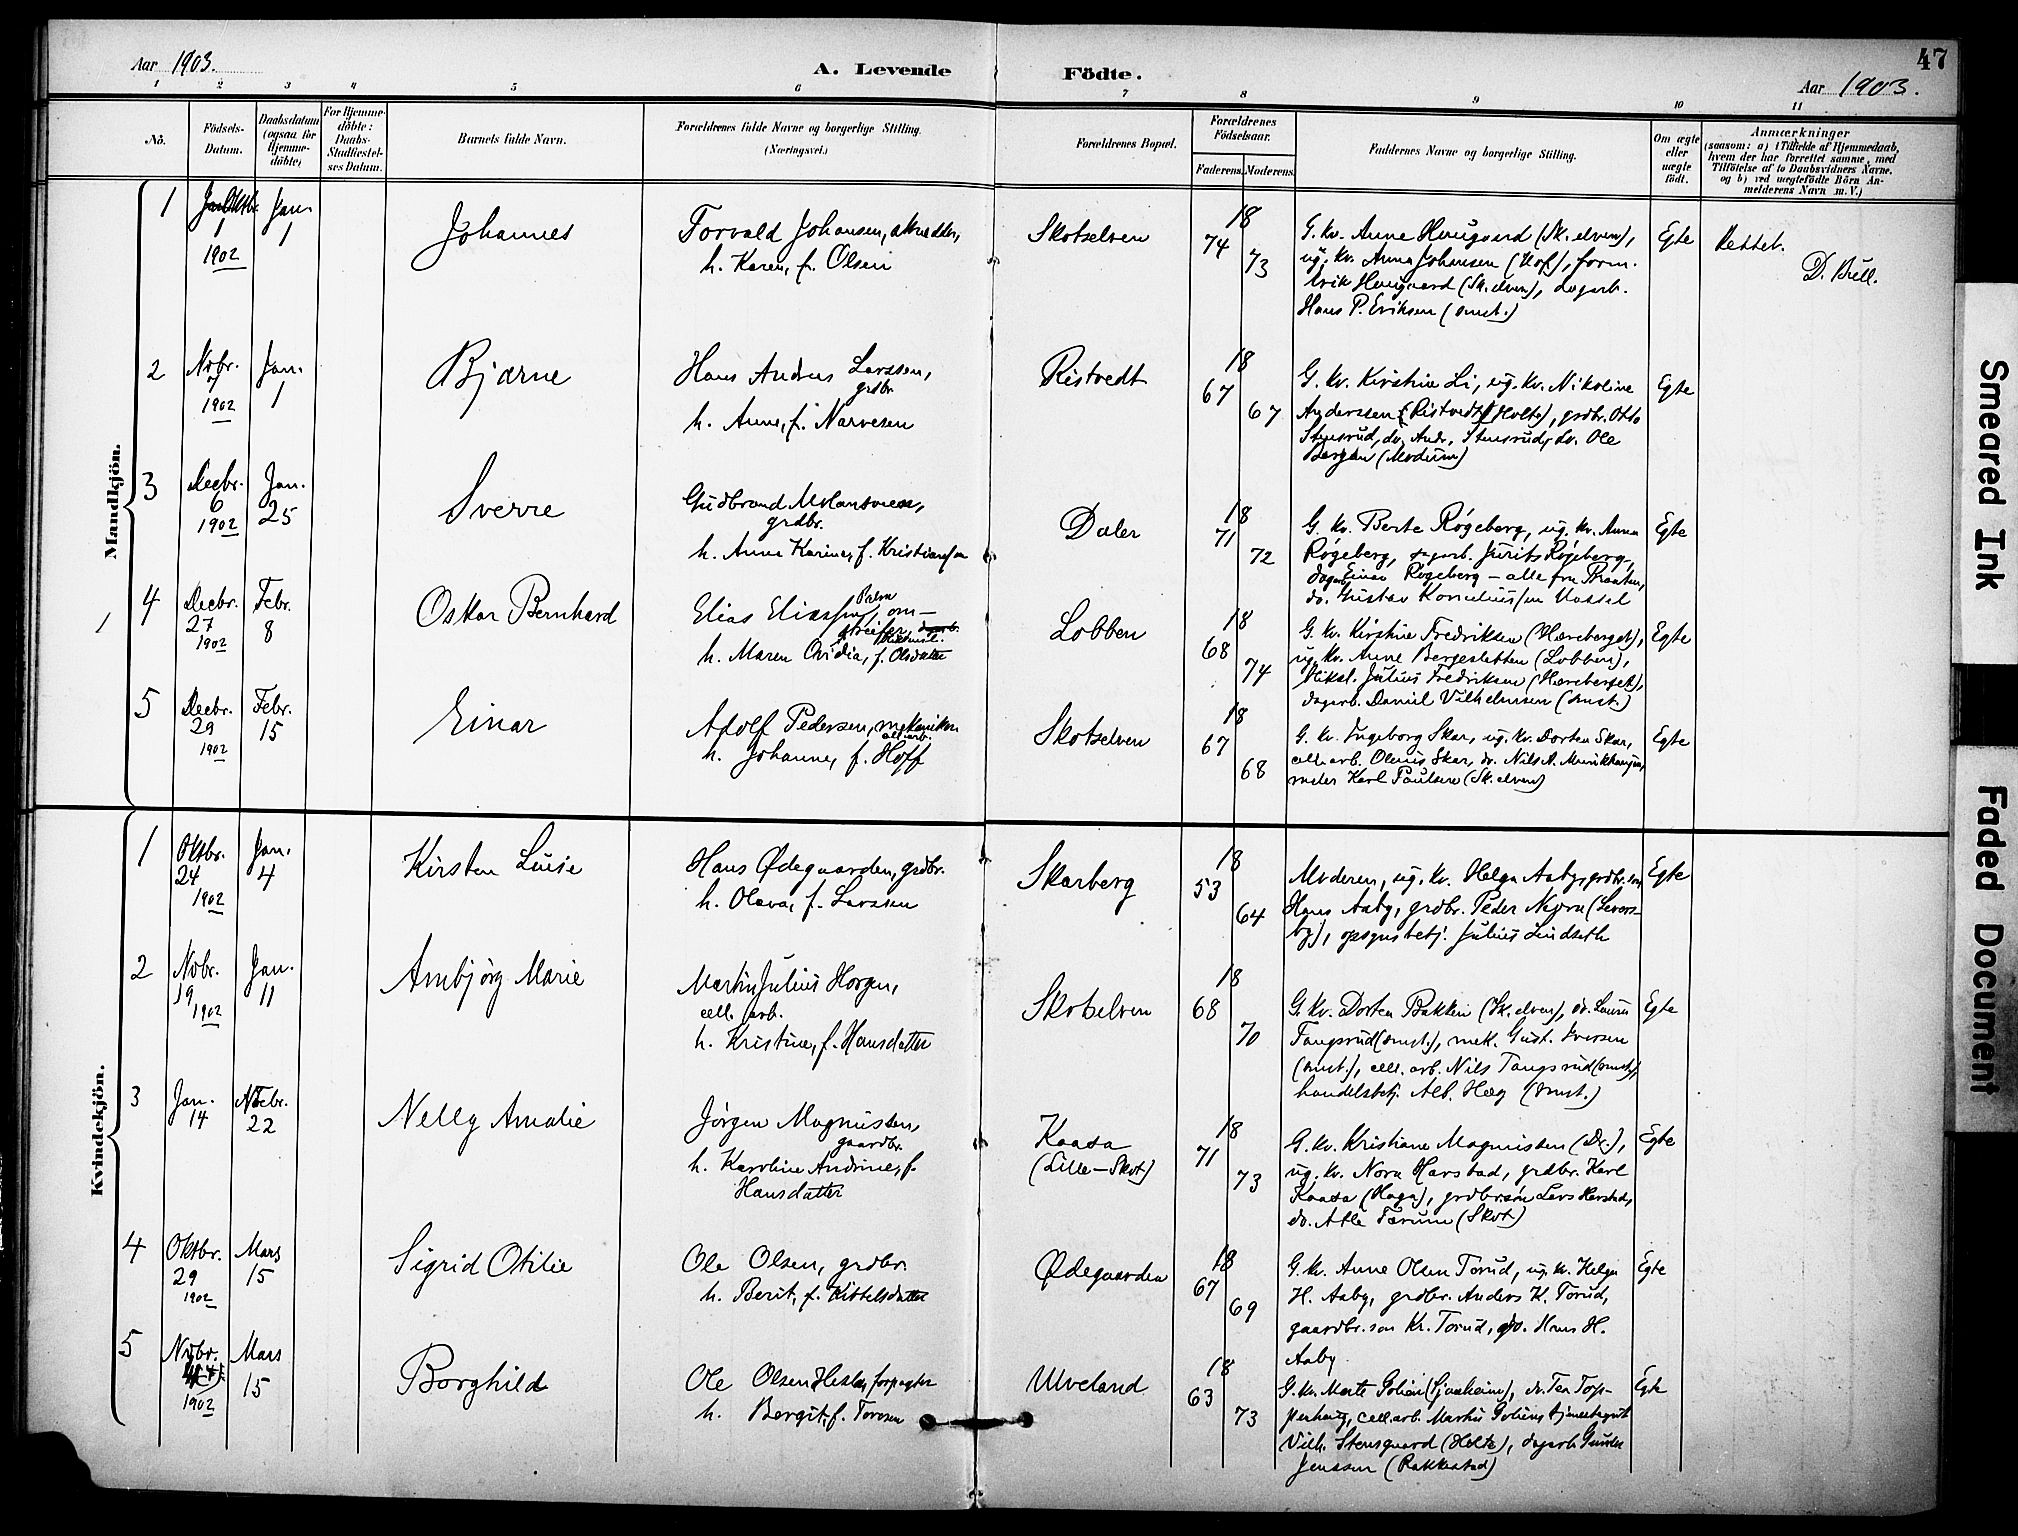 47
Aar 1903.
A. Levende Födte.
Aar 1903.
1 2 3 4 5 6 7 8 9 10 11
No.
Födsels-Datum.
Daabsdatum (ogsaa for Hjemme-döbte)
For Hjemme-döbte: Daabs-Stadfæstel-ses Datum.
Barnets fulde Navn.
Forældrenes fulde Navne og borgerlige Stilling.
(Næringsvei.)
Forældrenes Bopæl.
Forældrenes Födselsaar.
Faderens. Moderens.
Faddernes Navne og borgerlige Stilling.
Om ægte eller uægte födt.
Anmærkninger
(saasom: a) i Tilfælde af Hjemmedaab,
hvem der har forrettet samme, med
Tilföielse af to Daabsvidners Navne,
og b) ved uægtefödte Börn An-
melderens Navn m. V.)
Mandkjön.
1 Oktbr. 1 1902 Jan. 1 Johannes
Torvald Johansen, skrædder,
h. Karen, f. Olsen
Skotselven 18 74 73
G. kv. Anne Haugaard (Sk.elven),
ug. kv. Anna Johansen (Hof), form.
Erik Haugaard (Sk.elven), dagarb.
Hans P. Eriksen (smst.)
Egte Rettet. D. Bull.
2 Novbr. 7 1902 Jan. 1 Bjarne
Hans Anders Larssen,
grdbr.
h. Anne, f. Narvesen
Ristvedt 18 67 67
G. kv. Kirstine Li, ug. kv. Nikoline
Anderssen (Ristvedt) (Holte), grdbr. Otto
Stensrud, do. Andr. Stensrud, do. Ole
Bergan (Modum)
Egte
3 Decbr. 6 1902 Jan. 25 Sverre
Gudbrand
grdbr.
h. Anne Karine, f. Kristiansen
Daler 18 71 72
G. kv. Berte Røgeberg, ug. kv. Anna
Røgeberg, dagarb. Røgeberg,
dagarb. Einar Røgeberg — alle fra
do. Gustav Kornelius/en
Egte
4 Decbr. 27 1902 Febr. 8 Oskar Bernhard
Elias Eliassen om-
streifer
h. Maren Ovidia, f. Olsdatter
Lobben 18 68 74
G. kv. Kirstine Fredriksen (Hæreberget),
ug. kv. Anne Bergesletten (Lobben),
Julius Fredriksen (Hæreberget),
dagarb. Daniel Vilhelmsen (smst.)
Egte
5 Decbr. 29 1902 Febr. 15 Einar
Adolf Pedersen, mekaniker
cell.arb.
h. Johanne, f. Hoff
Skotselven 18 67 68
G. kv. Ingeborg Skar, ug. kv. Dorten Skar,
cell. arb. Olaus Skar, do. Nils A.
maler Karl Paulsen (Sk.elven)
Egte
Kvindekjön.
1 Oktbr. 24 1902 Jan. 4 Kirsten Luise
Hans Ødegaarden, grdbr.
h. Olava, f. Larssen
Skarberg 18 53 64
Moderen, ug. kv. Helga Aaby, grdbr. søn
Hans Aaby, grdbr. Peder Nygra (Levers-
by), opsynsbetj. Julius Lindseth
Egte
2 Novbr. 19 1902 Jan. 11 Arnbjørg Marie
Martin Julius Horgen,
cell. arb.
h. Kristine, f. Hansdatter
Skotselven 18 68 70
G. kv. Dorten Bakken (Sk.elven), do. Laura
Tangsrud (smst.), mek. Gust. Iversen
(smst.), cell. arb. Nils Tangsrud (smst.),
handelsbetj. Alb. Hæg (smst.)
Egte
3 Jan. 14 Febr. 22 Nelly Amalie
Jørgen Magnussen,
gaardbr.
h. Karoline Andrine, f.
Hansdatter
Kaasa
(Lille-Skot) 18 71 73
G. kv. Kristiane Magnussen (Dr.),
ug. kv. Nora Harstad, grdbr. Karl
Kaasa (Haga), grdbrsøn Lars Harstad,
do. Atle Tærum (Skot)
Egte
4 Oktbr. 29 1902 Mars 15 Sigrid Otilie
Ole Olsen, grdbr.
h. Berit, f. Kittelsdatter
Ødegaarden 18 67 69
G. kv. Anne Olsen Torud, ug. kv. Helga
H. Aaby, grdbr. Anders K. Torud,
gaardbr. søn Kr. Torud, do. Hans H.
Aaby
Egte
5 Novbr. 1902 Mars 15 Borghild
Ole Olsen forpagter
h. Bergit, f. Toresen
Ulveland 18 63 73
G. kv. Marte Golien do. Tea
cell. arb. Martin Golien,
Vilh. Stensgaard (Holte), dagarb. Gunder
Jenssen (Rakkestad)
Egte
Smeared Ink
Faded Document